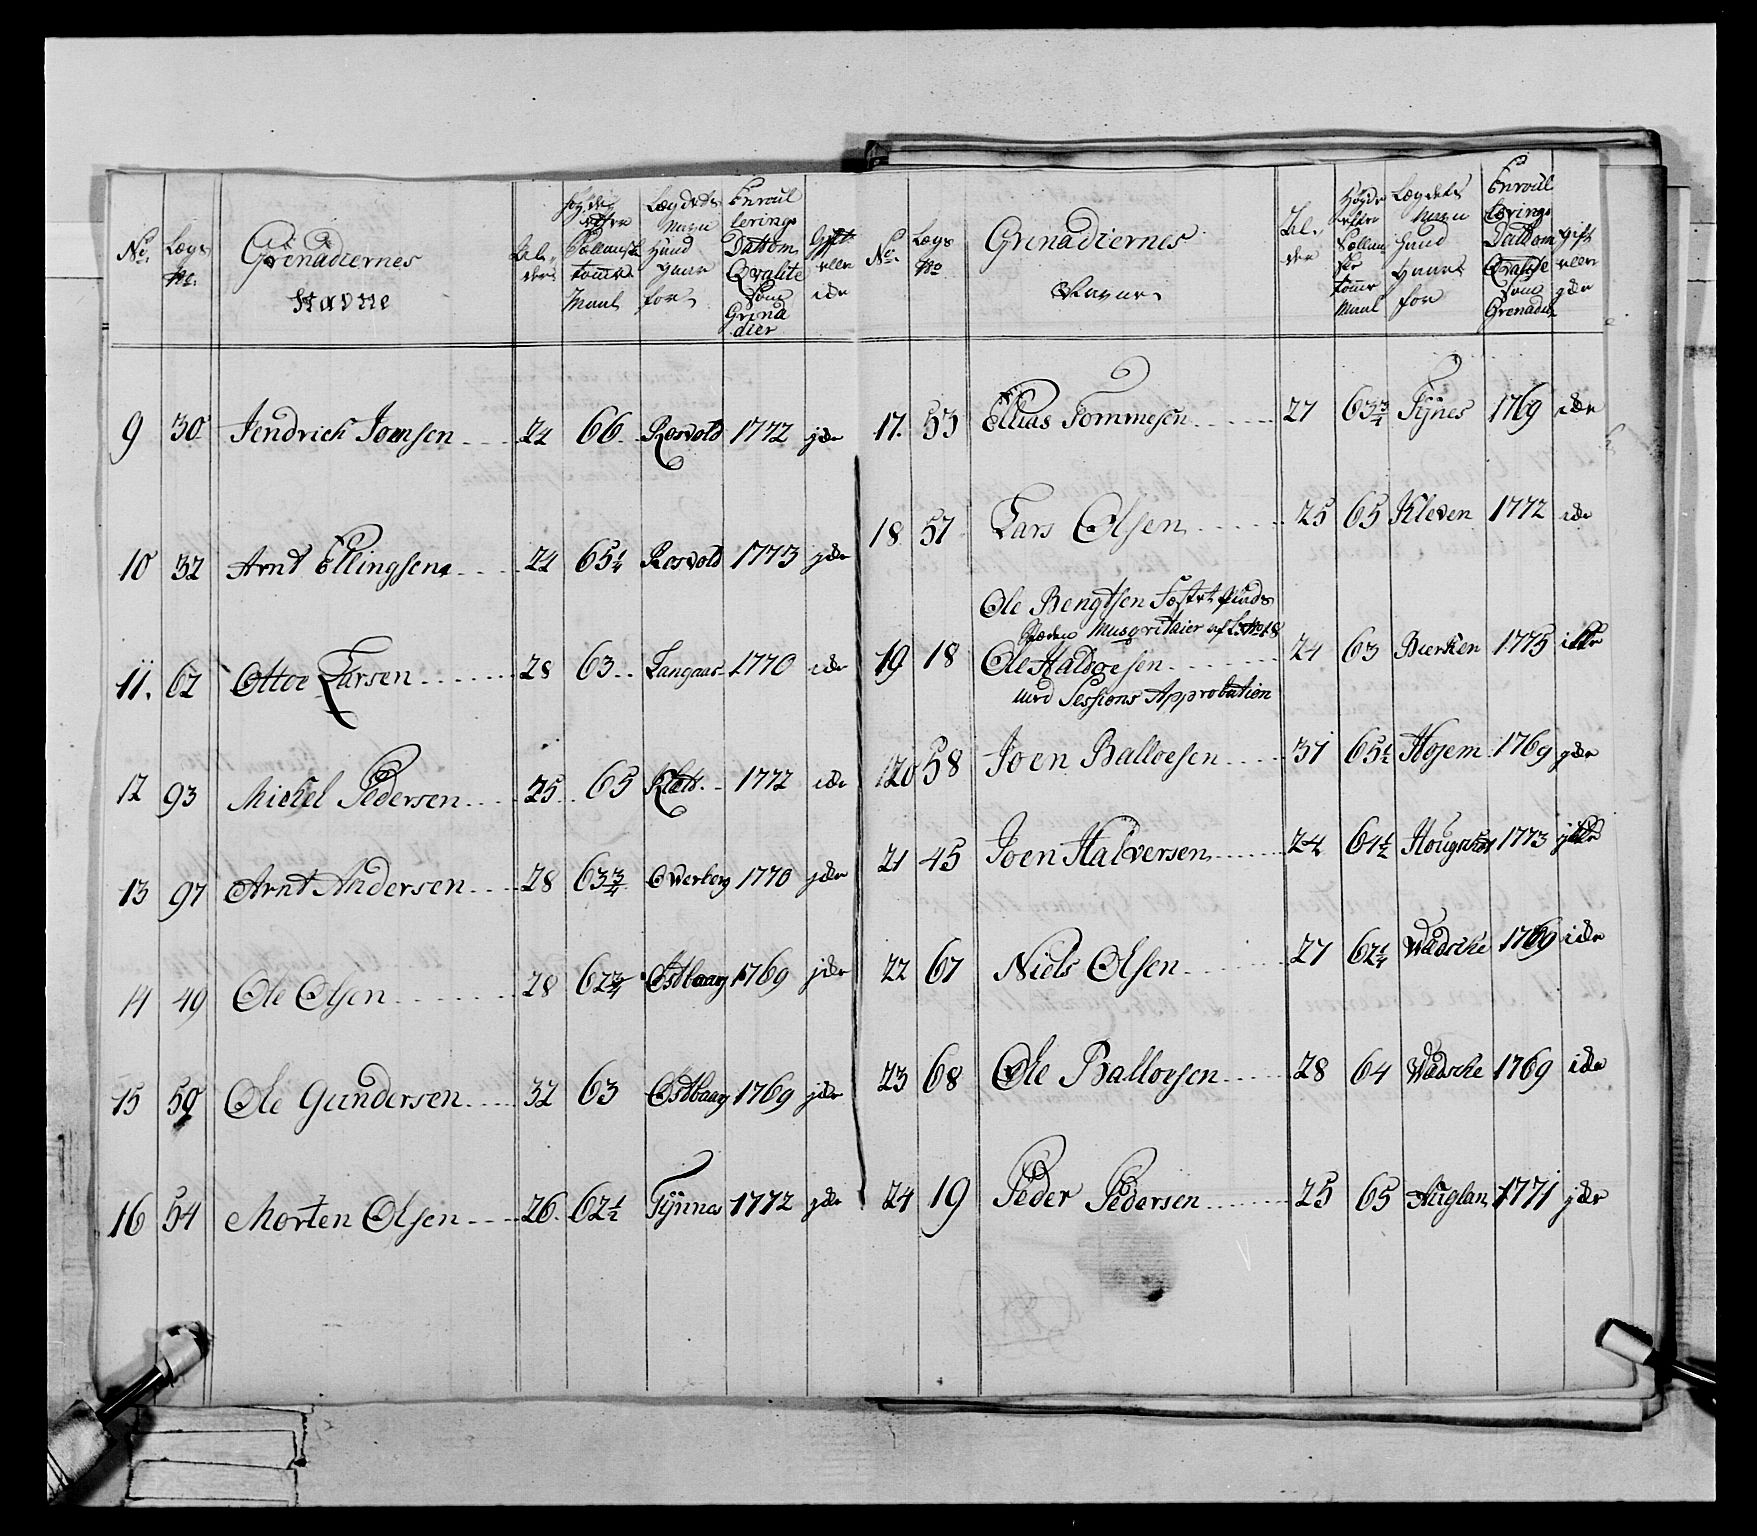 No.
Lægs No.
Grenadiernes Navne
Al-der
Høyde efter Sællandsk tomme Maal
Lægdets Navn hand staar for
Enroullerings Dattom Qvalite som Grenadier
Gift eller ide
9 30 Jendrich Jonsen 24 66 Rosvold 1772 jde
10 32 Arnt Ellingsen 24 65 1/4 Rosvold 1773 jde
11. 62 Ottoe Larsen 28 63 Langaas 1770 ide
12 93 Michel Pedersen 25 65 Klæt 1772 ide
13 97 Arnt Andersen 28 63 3/4 Overberg 1770 jde
14 49 Ole Olsen 28 62 3/4 Ostbaag 1769 jde
15 50 Ole Gundersen 32 63 Ostbaag 1769 jde
16 54 Morten Olsen 26 62 1/2 Tynnes 1772 jde
No.
Lægs No
Grenadiernes Navne
Al-der
Høyde efter Sællandske tomme Maal
Lægdets Navn hand staar for
Enroullerings Dattom Qvalite som Grenadier
gift eller jde
17. 53 Ellias Tommesen 27 63 3/4 Tynes 1769 ide
18 57 Lars Olsen 25 65 Kleven 1772 ide
Ole Bengtsen
Musqvitaier af L: No 18
19 18 Ole Haldoesen 24 63 Bierken 1775
med Sessions Approbation
20 58 Joen Balloesen 31 65 1/2 Hojem 1769 jde
21 45 Joen Halversen 24 64 1/2 1773
22 67 Niels Olsen 27 62 1/4 Wadsche 1769 ide
23 68 Ole Balloesen 28 64 Wadsche 1769 ide
24 19 Peder Pedersen 25 65 Auglan 1771 jde